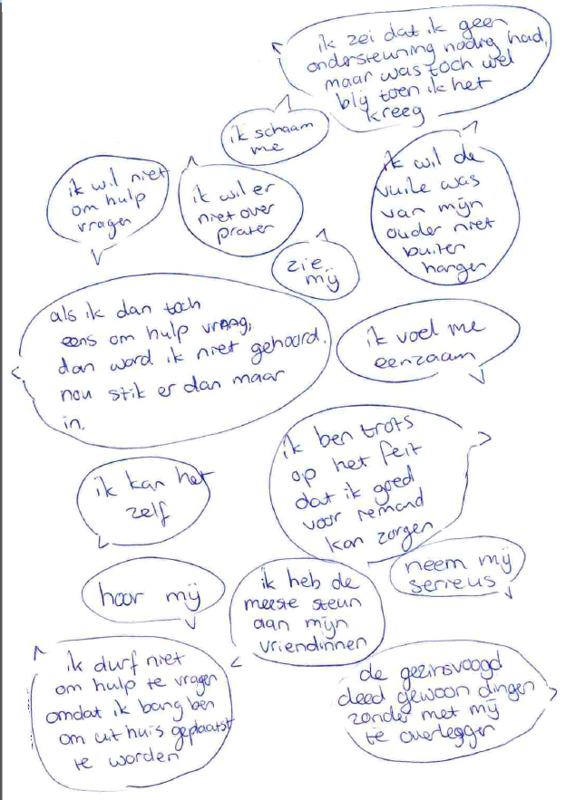 ik zei dat ik geen
ondersteuning nodig had,
maar was toch wel
blij toen ik het
kreeg
ik schaam
me
ik wil niet
om hulp
vragen
ik wil er
niet over
praten
ik wil de
vuile was
van mijn
ouder niet
buiten
hangen
zie
mij
als ik dan toch
eens om hulp vraag,
dan word ik niet gehoord.
nou stik er dan maar
in.
ik voel me
eenzaam
ik ben trots
op het feit
dat ik goed
voor iemand
kan zorgen
ik kan het
zelf
neem mij
serieus
hoor mij
ik heb de
meeste steun
aan mijn
vriendinnen
ik durf niet
om hulp te vragen
omdat ik bang ben
om uit huis geplaatst
te worden
de gezinsvoogd
deed gewoon dingen
zonder met mij
te overleggen